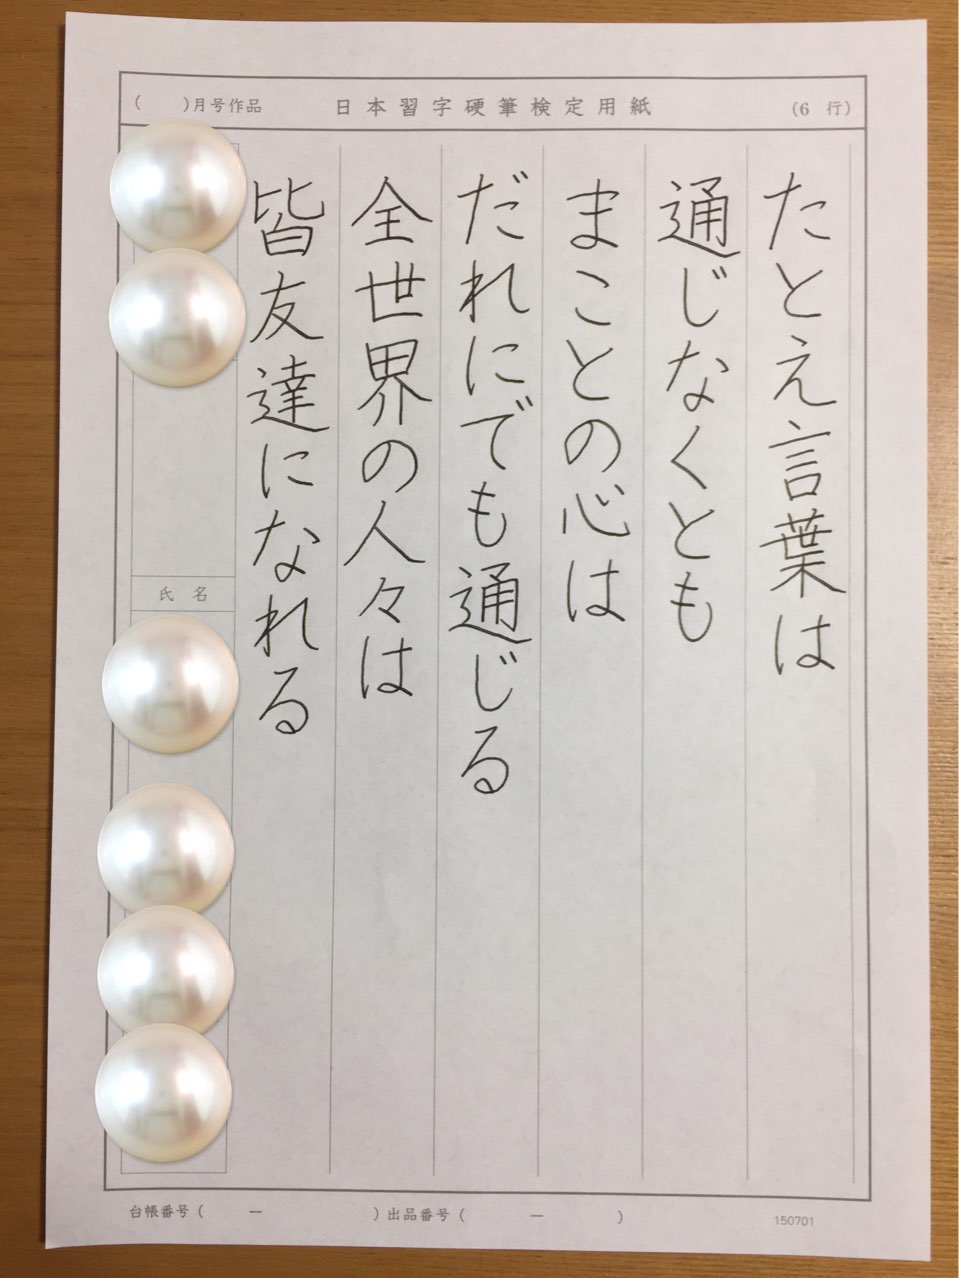 ( )月号作品 日本習字硬筆検定用紙 (6 行)
たとえ言葉は
通じなくとも
まことの心は
だれにでも通じる
全世界の人々は
皆友達になれる
氏名
台帳番号 ( ー ) 出品番号 ( ー )
150701